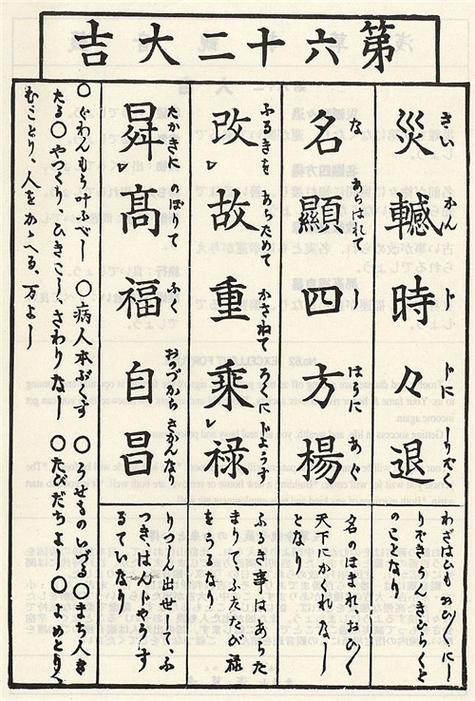 第六十二大吉
災轗時々退
さい かん じゞ しりぞく
わざはひも おひ〱にし
りぞき、うんきひらくと
のことなり
名顯四方楊
な あらはれて しほうに あぐ
名のほまれ、おひ〱
天下にかくれなし
となり
改故重乗禄
ふるきを あらためて かさねて ろくに じょうず
ふるき事はあらた
まりて、ふたゝび禄
をうるなり
昇髙福自昌
たかきに のぼりて ふく おのづから さかんなり
りつしん出世して、ふく
つき、はんじやうす
るていなり
〇ぐわんもう叶ふべし 〇病人本ぶくす 〇うせものいづる〇まち人き
たる〇やづくりひきこしさわりなし 〇たびだちよし〇よめとり、
むことり、人をかゝへる、万よし